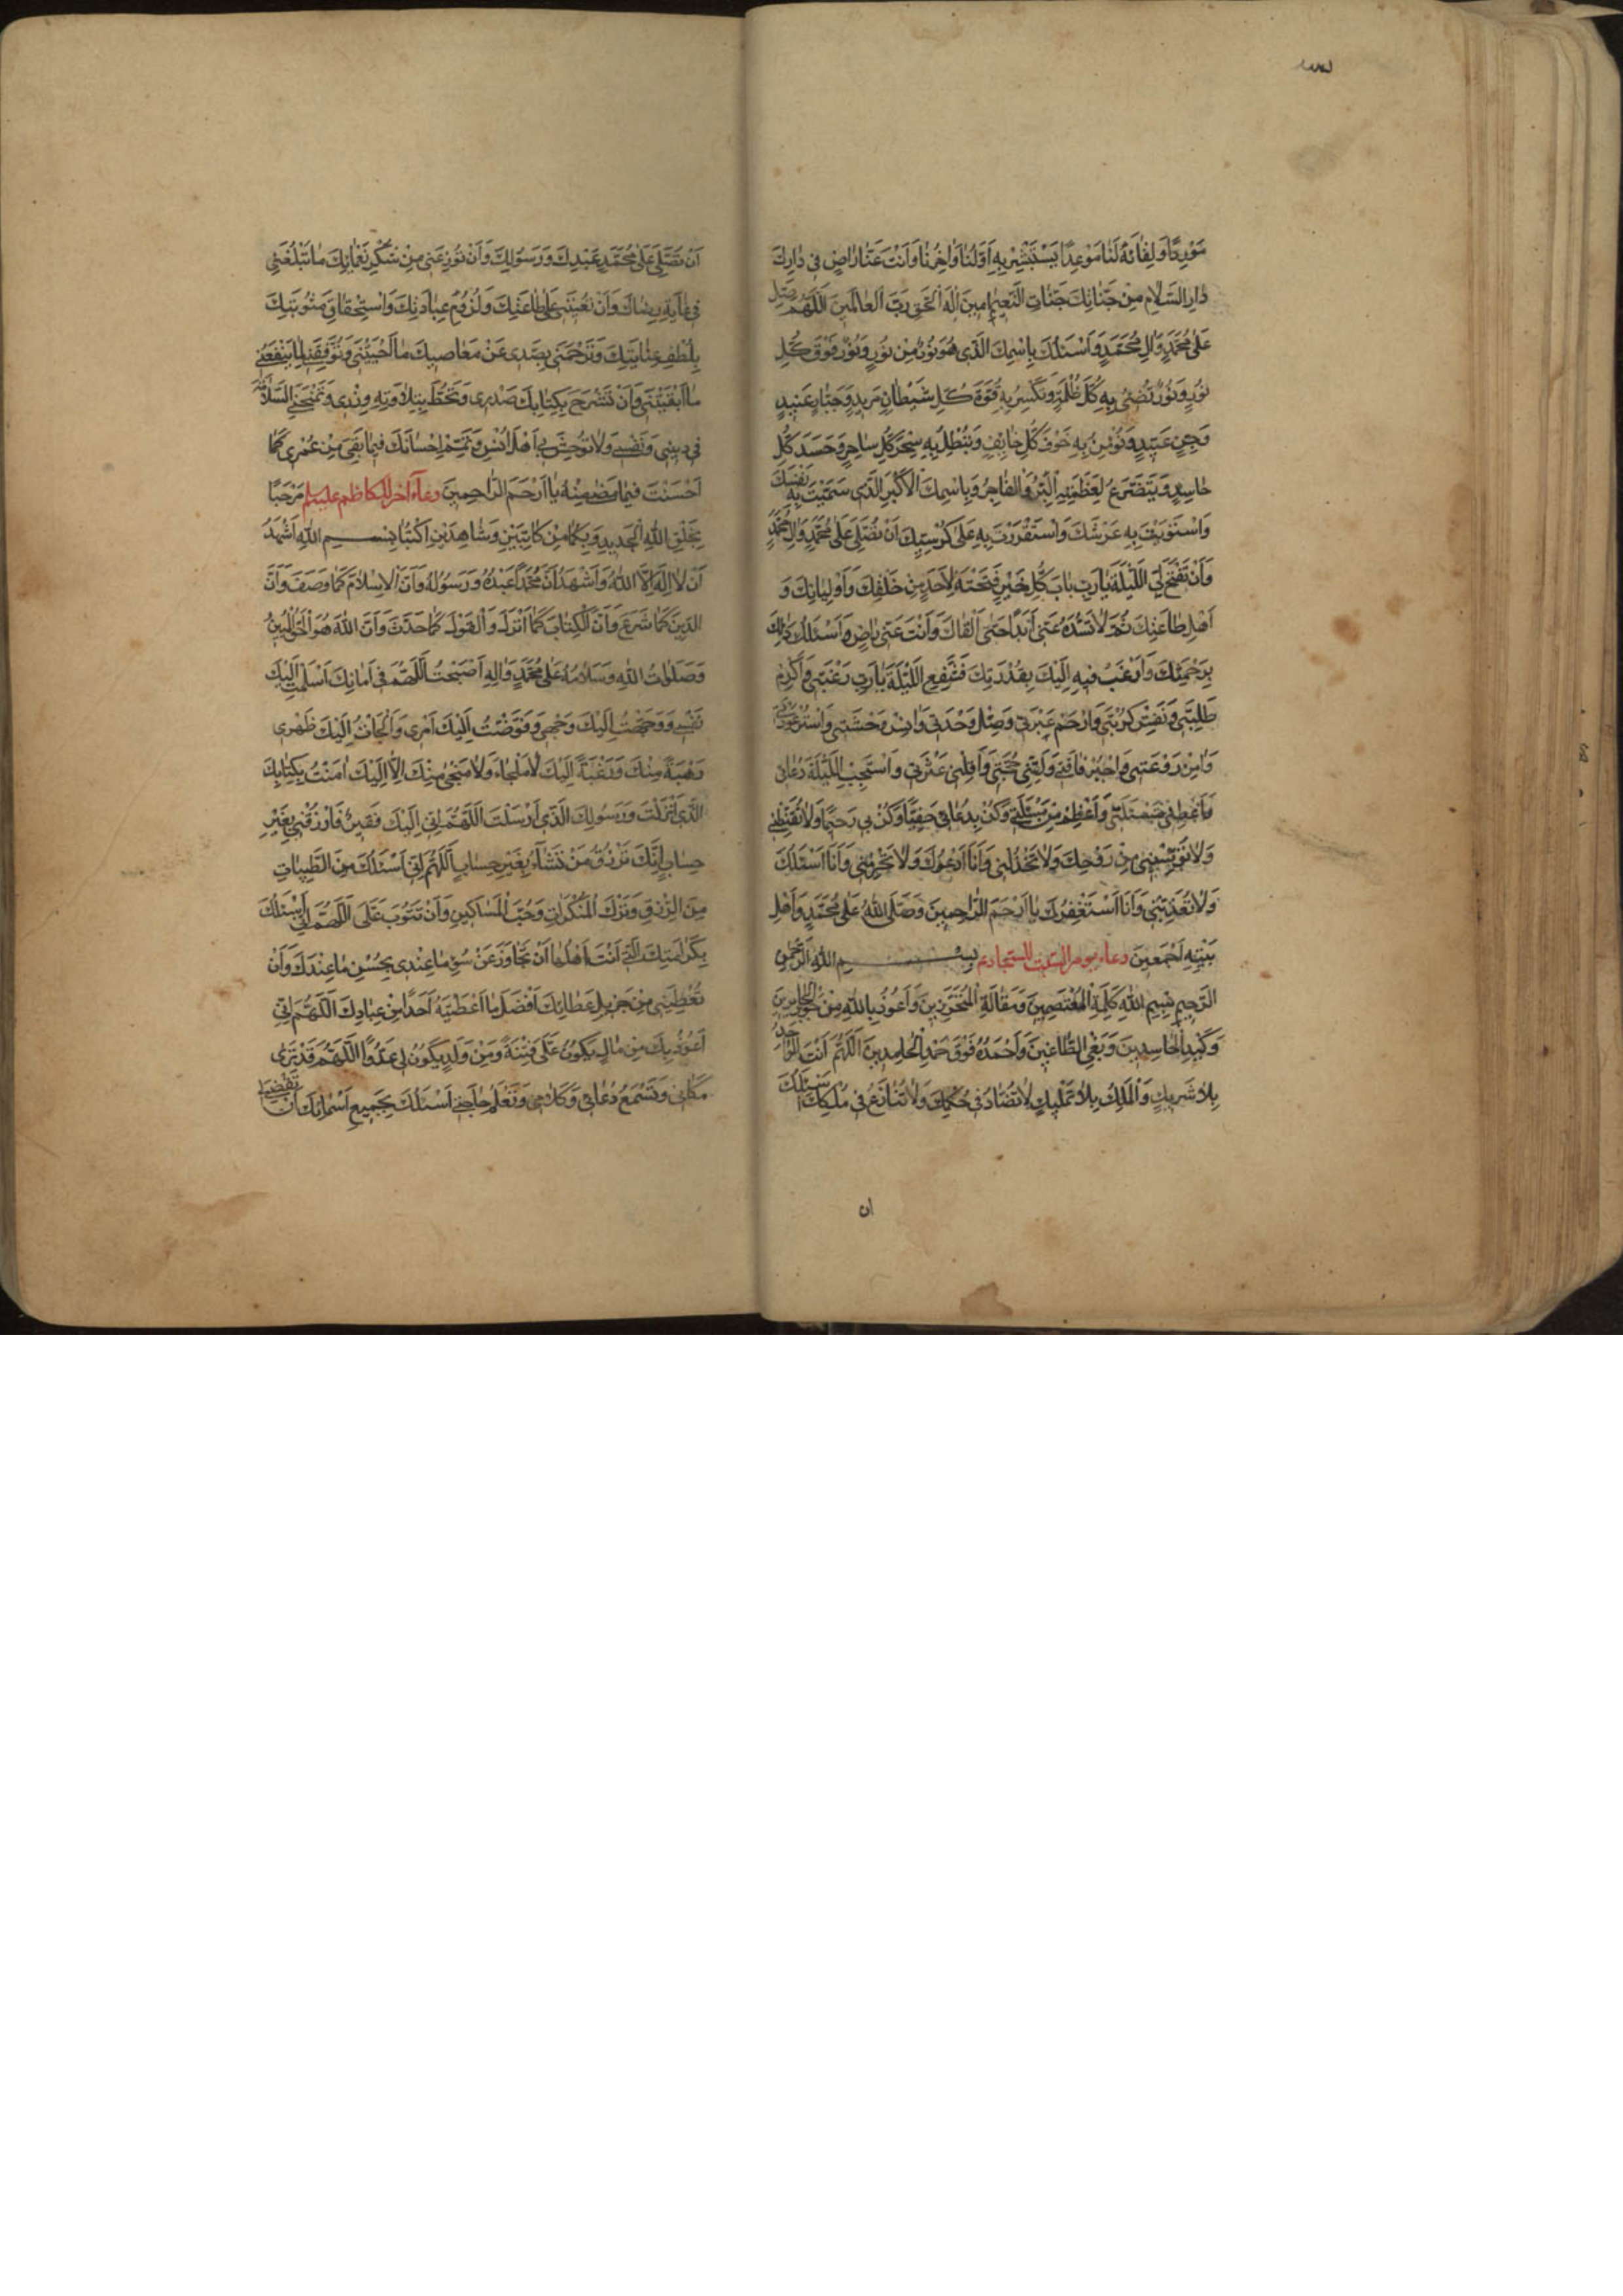 مَوْرِدًا وَلِقَائَهُ لَنَا مَوْعِدًا يَسْتَبْشِرُ بِهِ اَوَّلُنَا وَاٰخِرُنَا وَاَنْتَ عَنَّا رَاضٍ فِي دَارِكَ
دَارِ السَّلَامِ مِنْ جَنَّاتِكَ جَنَّاتِ النَّعِيمِ اٰمِينَ اِلٰهَ الْحَقِّ رَبَّ الْعَالَمِينَ اَللّٰهُمَّ صَلِّ
عَلٰى مُحَمَّدٍ وَاٰلِ مُحَمَّدٍ وَاَسْئَلُكَ بِاسْمِكَ الَّذِي هُوَ نُورٌ مِنْ نُورٍ وَنُورٌ فَوْقَ كُلِّ
نُورٍ وَنُورٌ تُضِيءُ بِهِ كُلَّ ظُلْمَةٍ وَتَكْسِرُ بِهِ قُوَّةَ كُلِّ شَيْطَانٍ مَرِيدٍ وَجَبَّارٍ عَنِيدٍ
وَجِنٍّ عَتِيدٍ وَتُؤْمِنُ بِهِ خَوْفَ كُلِّ خَائِفٍ وَتُبْطِلُ بِهِ سِحْرَ كُلِّ سَاحِرٍ وَحَسَدَ كُلِّ
حَاسِدٍ وَيَتَضَرَّعُ لِعَظَمَتِهِ الْبَرُّ وَالْفَاجِرُ وَبِاسْمِكَ الْاَكْبَرِ الَّذِي سَمَّيْتَ بِهِ نَفْسَكَ
وَاسْتَوَيْتَ بِهِ عَرْشَكَ وَاسْتَقْرَرْتَ بِهِ عَلٰى كُرْسِيِّكَ اَنْ تُصَلِّيَ عَلٰى مُحَمَّدٍ وَاٰلِ مُحَمَّدٍ
وَاَنْ تَفْتَحَ لِيَ اللَّيْلَةَ يَا رَبِّ بَابَ كُلِّ خَيْرٍ فَتَحْتَهُ لِاَحَدٍ مِنْ خَلْقِكَ وَاَوْلِيَائِكَ وَ
اَهْلِ طَاعَتِكَ ثُمَّ لَا تَسُدَّهُ عَنِّي اَبَدًا حَتّٰى اَلْقَاكَ وَاَنْتَ عَنِّي رَاضٍ وَاَسْئَلُكَ ذٰلِكَ
بِرَحْمَتِكَ وَاَرْغَبُ فِيهِ اِلَيْكَ بِقُدْرَتِكَ فَشَفِّعِ اللَّيْلَةَ يَا رَبِّ رَغْبَتِي وَاَكْرِمْ
طَلِبَتِي وَنَفِّسْ كُرْبَتِي وَارْحَمْ عَبْرَتِي وَصِلْ وَحْدَتِي وَاٰنِسْ وَحْشَتِي وَاسْتُرْ عَوْرَتِي
وَاٰمِنْ رَوْعَتِي وَاجْبُرْ فَاقَتِي وَلَقِّنِي حُجَّتِي وَاَقِلْنِي عَثْرَتِي وَاسْتَجِبِ اللَّيْلَةَ دُعَائِي
وَاَعْطِنِي مَسْئَلَتِي وَاَعْظِمْ مِنْ مَسْئَلَتِي وَكُنْ بِدُعَائِي حَفِيًّا وَكُنْ بِي رَحِيمًا وَلَا تُقَنِّطْنِي
وَلَا تُؤْيِسْنِي مِنْ رَوْحِكَ وَلَا تَخْذُلْنِي وَاَنَا اَدْعُوكَ وَلَا تَحْرِمْنِي وَاَنَا اَسْئَلُكَ
وَلَا تُعَذِّبْنِي وَاَنَا اَسْتَغْفِرُكَ يَا اَرْحَمَ الرَّاحِمِينَ وَصَلَّى اللّٰهُ عَلٰى مُحَمَّدٍ وَاَهْلِ
بَيْتِهِ اَجْمَعِينَ دعاء يوم السبت للسجاد ع بِسْمِ اللّٰهِ الرَّحْمٰنِ
الرَّحِيمِ بِسْمِ اللّٰهِ كَلِمَةِ الْمُعْتَصِمِينَ وَمَقَالَةِ الْمُتَحَرِّزِينَ وَاَعُوذُ بِاللّٰهِ مِنْ جَوْرِ الْجَائِرِينَ
وَكَيْدِ الْحَاسِدِينَ وَبَغْيِ الطَّاغِينَ وَاَحْمَدُهُ فَوْقَ حَمْدِ الْحَامِدِينَ اَللّٰهُمَّ اَنْتَ الْوَاحِدُ
بِلَا شَرِيكٍ وَالْمَلِكُ بِلَا تَمْلِيكٍ لَا تُضَادُّ فِي حُكْمِكَ وَلَا تُنَازَعُ فِي مُلْكِكَ اَسْئَلُكَ
ان
اَنْ تُصَلِّيَ عَلٰى مُحَمَّدٍ عَبْدِكَ وَرَسُولِكَ وَاَنْ تُوزِعَنِي مِنْ شُكْرِ نَعْمَائِكَ مَا تَبْلُغُنِي
فِي غَايَةِ رِضَاكَ وَاَنْ تُعِينَنِي عَلٰى طَاعَتِكَ وَلُزُومِ عِبَادَتِكَ وَاسْتِحْقَاقِ مَثُوبَتِكَ
بِلُطْفِ عِنَايَتِكَ وَتَرْحَمَنِي بِصَدِّي عَنْ مَعَاصِيكَ مَا اَحْيَيْتَنِي وَتُوَفِّقَنِي لِمَا يَنْفَعُنِي
مَا اَبْقَيْتَنِي وَاَنْ تَشْرَحَ بِكِتَابِكَ صَدْرِي وَتَحُطَّ بِتِلَاوَتِهِ وِزْرِي وَتَمْنَحَنِيَ السَّلَامَةَ
فِي دِينِي وَنَفْسِي وَلَا تُوحِشَ بِي اَهْلَ اُنْسِي وَتُتِمَّ اِحْسَانَكَ فِيمَا بَقِيَ مِنْ عُمْرِي كَمَا
اَحْسَنْتَ فِيمَا مَضٰى مِنْهُ يَا اَرْحَمَ الرَّاحِمِينَ دعاء آخر للكاظم عليه السلم مَرْحَبًا
بِخَلْقِ اللّٰهِ الْجَدِيدِ وَبِكُمَا مِنْ كَاتِبَيْنِ وَشَاهِدَيْنِ اُكْتُبَا بِسْمِ اللّٰهِ اَشْهَدُ
اَنْ لَا اِلٰهَ اِلَّا اللّٰهُ وَاَشْهَدُ اَنَّ مُحَمَّدًا عَبْدُهُ وَرَسُولُهُ وَاَنَّ الْاِسْلَامَ كَمَا وَصَفَ وَاَنَّ
الدِّينَ كَمَا شَرَعَ وَاَنَّ الْكِتَابَ كَمَا اَنْزَلَ وَالْقَوْلَ كَمَا حَدَّثَ وَاَنَّ اللّٰهَ هُوَ الْحَقُّ الْمُبِينُ
وَصَلَوَاتُ اللّٰهِ وَسَلَامُهُ عَلٰى مُحَمَّدٍ وَاٰلِهِ اَصْبَحْتُ اَللّٰهُمَّ فِي اَمَانِكَ اَسْلَمْتُ اِلَيْكَ
نَفْسِي وَوَجَّهْتُ اِلَيْكَ وَجْهِي وَفَوَّضْتُ اِلَيْكَ اَمْرِي وَاَلْجَأْتُ اِلَيْكَ ظَهْرِي
رَهْبَةً مِنْكَ وَرَغْبَةً اِلَيْكَ لَا مَلْجَاءَ وَلَا مَنْجٰى مِنْكَ اِلَّا اِلَيْكَ اٰمَنْتُ بِكِتَابِكَ
الَّذِي اَنْزَلْتَ وَرَسُولِكَ الَّذِي اَرْسَلْتَ اَللّٰهُمَّ اِنِّي اِلَيْكَ فَقِيرٌ فَارْزُقْنِي بِغَيْرِ
حِسَابٍ اِنَّكَ تَرْزُقُ مَنْ تَشَاءُ بِغَيْرِ حِسَابٍ اَللّٰهُمَّ اِنِّي اَسْئَلُكَ مِنَ الطَّيِّبَاتِ
مِنَ الرِّزْقِ وَتَرْكَ الْمُنْكَرَاتِ وَحُبَّ الْمَسَاكِينِ وَاَنْ تَتُوبَ عَلَيَّ اَللّٰهُمَّ اِنِّي اَسْئَلُكَ
بِكَرَامَتِكَ الَّتِي اَنْتَ اَهْلُهَا اَنْ تَجَاوَزَ عَنْ سُوءِ مَا عِنْدِي بِحُسْنِ مَا عِنْدَكَ وَاَنْ
تُعْطِيَنِي مِنْ جَزِيلِ عَطَائِكَ اَفْضَلَ مَا اَعْطَيْتَهُ اَحَدًا مِنْ عِبَادِكَ اَللّٰهُمَّ اِنِّي
اَعُوذُ بِكَ مِنْ مَالٍ يَكُونُ عَلَيَّ فِتْنَةً وَمِنْ وَلَدٍ يَكُونُ لِي عَدُوًّا اَللّٰهُمَّ قَدْ تَرٰى
مَكَانِي وَتَسْمَعُ دُعَائِي وَكَلَامِي وَتَعْلَمُ حَاجَتِي اَسْئَلُكَ بِجَمِيعِ اَسْمَائِكَ اَنْ تَقْضِيَ